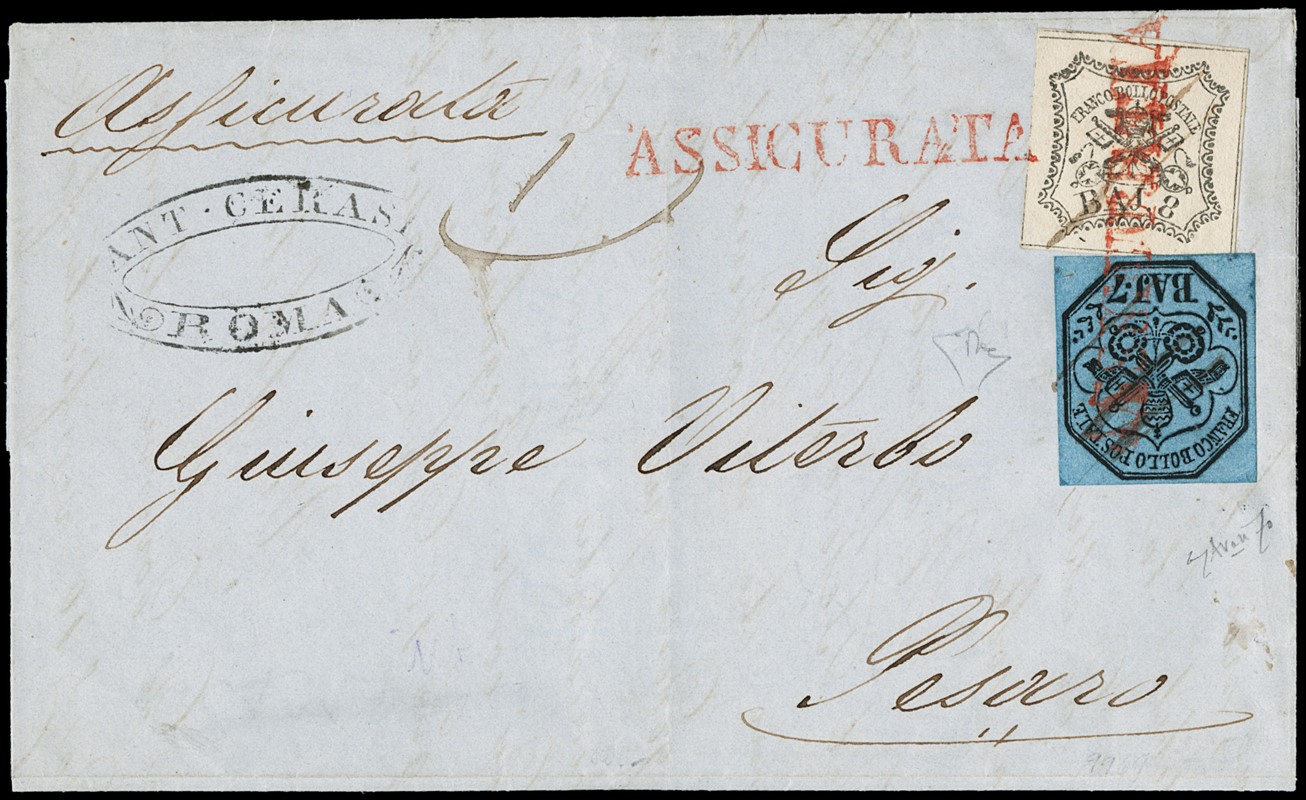 Assicurata
ASSICURATA
ANT · CERASI
ROMA
FRANCO BOLLO POSTALE
BAJ 8
ASSICURATA
BAJ·7
FRANCO BOLLO POSTALE
Sig.
Giuseppe Viterbo
Pesaro